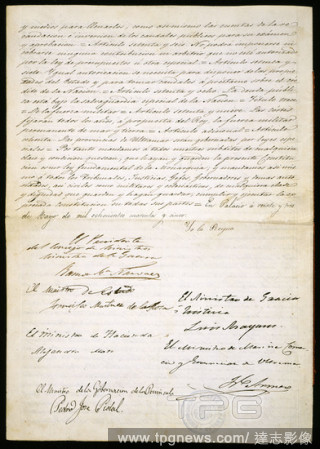 y medios para llenarlos, como asimismo las cuentas de la re-
caudacion é inversion de los caudales públicos para su exámen
y aprobacion. = Artículo setenta y seis. No podrá imponerse ni
cobrarse ninguna contribucion ni arbitrio que no esté autorizado
por la ley de presupuestos ú otra especial. = Artículo setenta y
siete. Igual autorizacion se necesita para disponer de las propie-
dades del Estado y para tomar caudales á préstamo sobre el cré-
dito de la Nacion. = Artículo setenta y ocho. La deuda pública
está bajo la salvaguardia especial de la Nacion. = Título
De la fuerza militar. = Artículo setenta y nueve. Las Cortes
fijarán todos los años, á propuesta del Rey, la fuerza militar
permanente de mar y tierra. = Artículo adicional. = Artículo
Las provincias de Ultramar serán gobernadas por leyes espe-
ciales. = Por tanto mandamos á todos nuestros súbditos de cualquiera
clase y condicion que sean, que hayan y guarden la presente Constitu-
cion como ley fundamental de la Monarquía; y mandamos asi mis-
mo á todos los Tribunales, Justicias, Gefes, Gobernadores y demas auto-
ridades, asi civiles como militares y eclesiásticas, de cualquiera clase
y dignidad, que guarden y hagan guardar, cumplir y ejecutar la
Constitucion en todas sus partes. = En Palacio á veinte y tres
de Mayo de mil ochocientos cuarenta y cinco.
Yo la Reyna
El Presidente
del Consejo de Ministros
Ministro de la Guerra
Ramon Ma. Narvaez
El Ministro de Estado
Francisco Martinez de la Rosa
El Ministro de Gracia
y Justicia
Luis Mayans
El Ministro de Hacienda
Alejandro Mon
El Ministro de Marina, Comercio
y Gobernacion de Ultramar
Armero
El Ministro de la Gobernacion de la Península
Pedro José Pidal
www.tpgnews.com | 達志影像